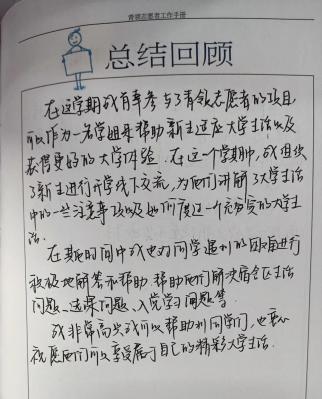 青领志愿者工作手册
总结回顾
在这学期我有幸参与了青领志愿者的项目
可以作为一名学姐来帮助新生适应大学生活以及
获得更好的大学体验。在这一个学期中，我组织
了新生进行了线下交流，为他们讲解了大学生活
中的一些注意事项以及如何度过一个充实的大学生
活。
在其他时间中我也对同学遇到的困难进行
积极地解答和帮助，帮助他们解决宿舍生活
问题、选课问题、入党学习问题等。
我非常高兴我可以帮助到同学们，也衷心
祝愿他们可以享受属于自己的精彩大学生活。